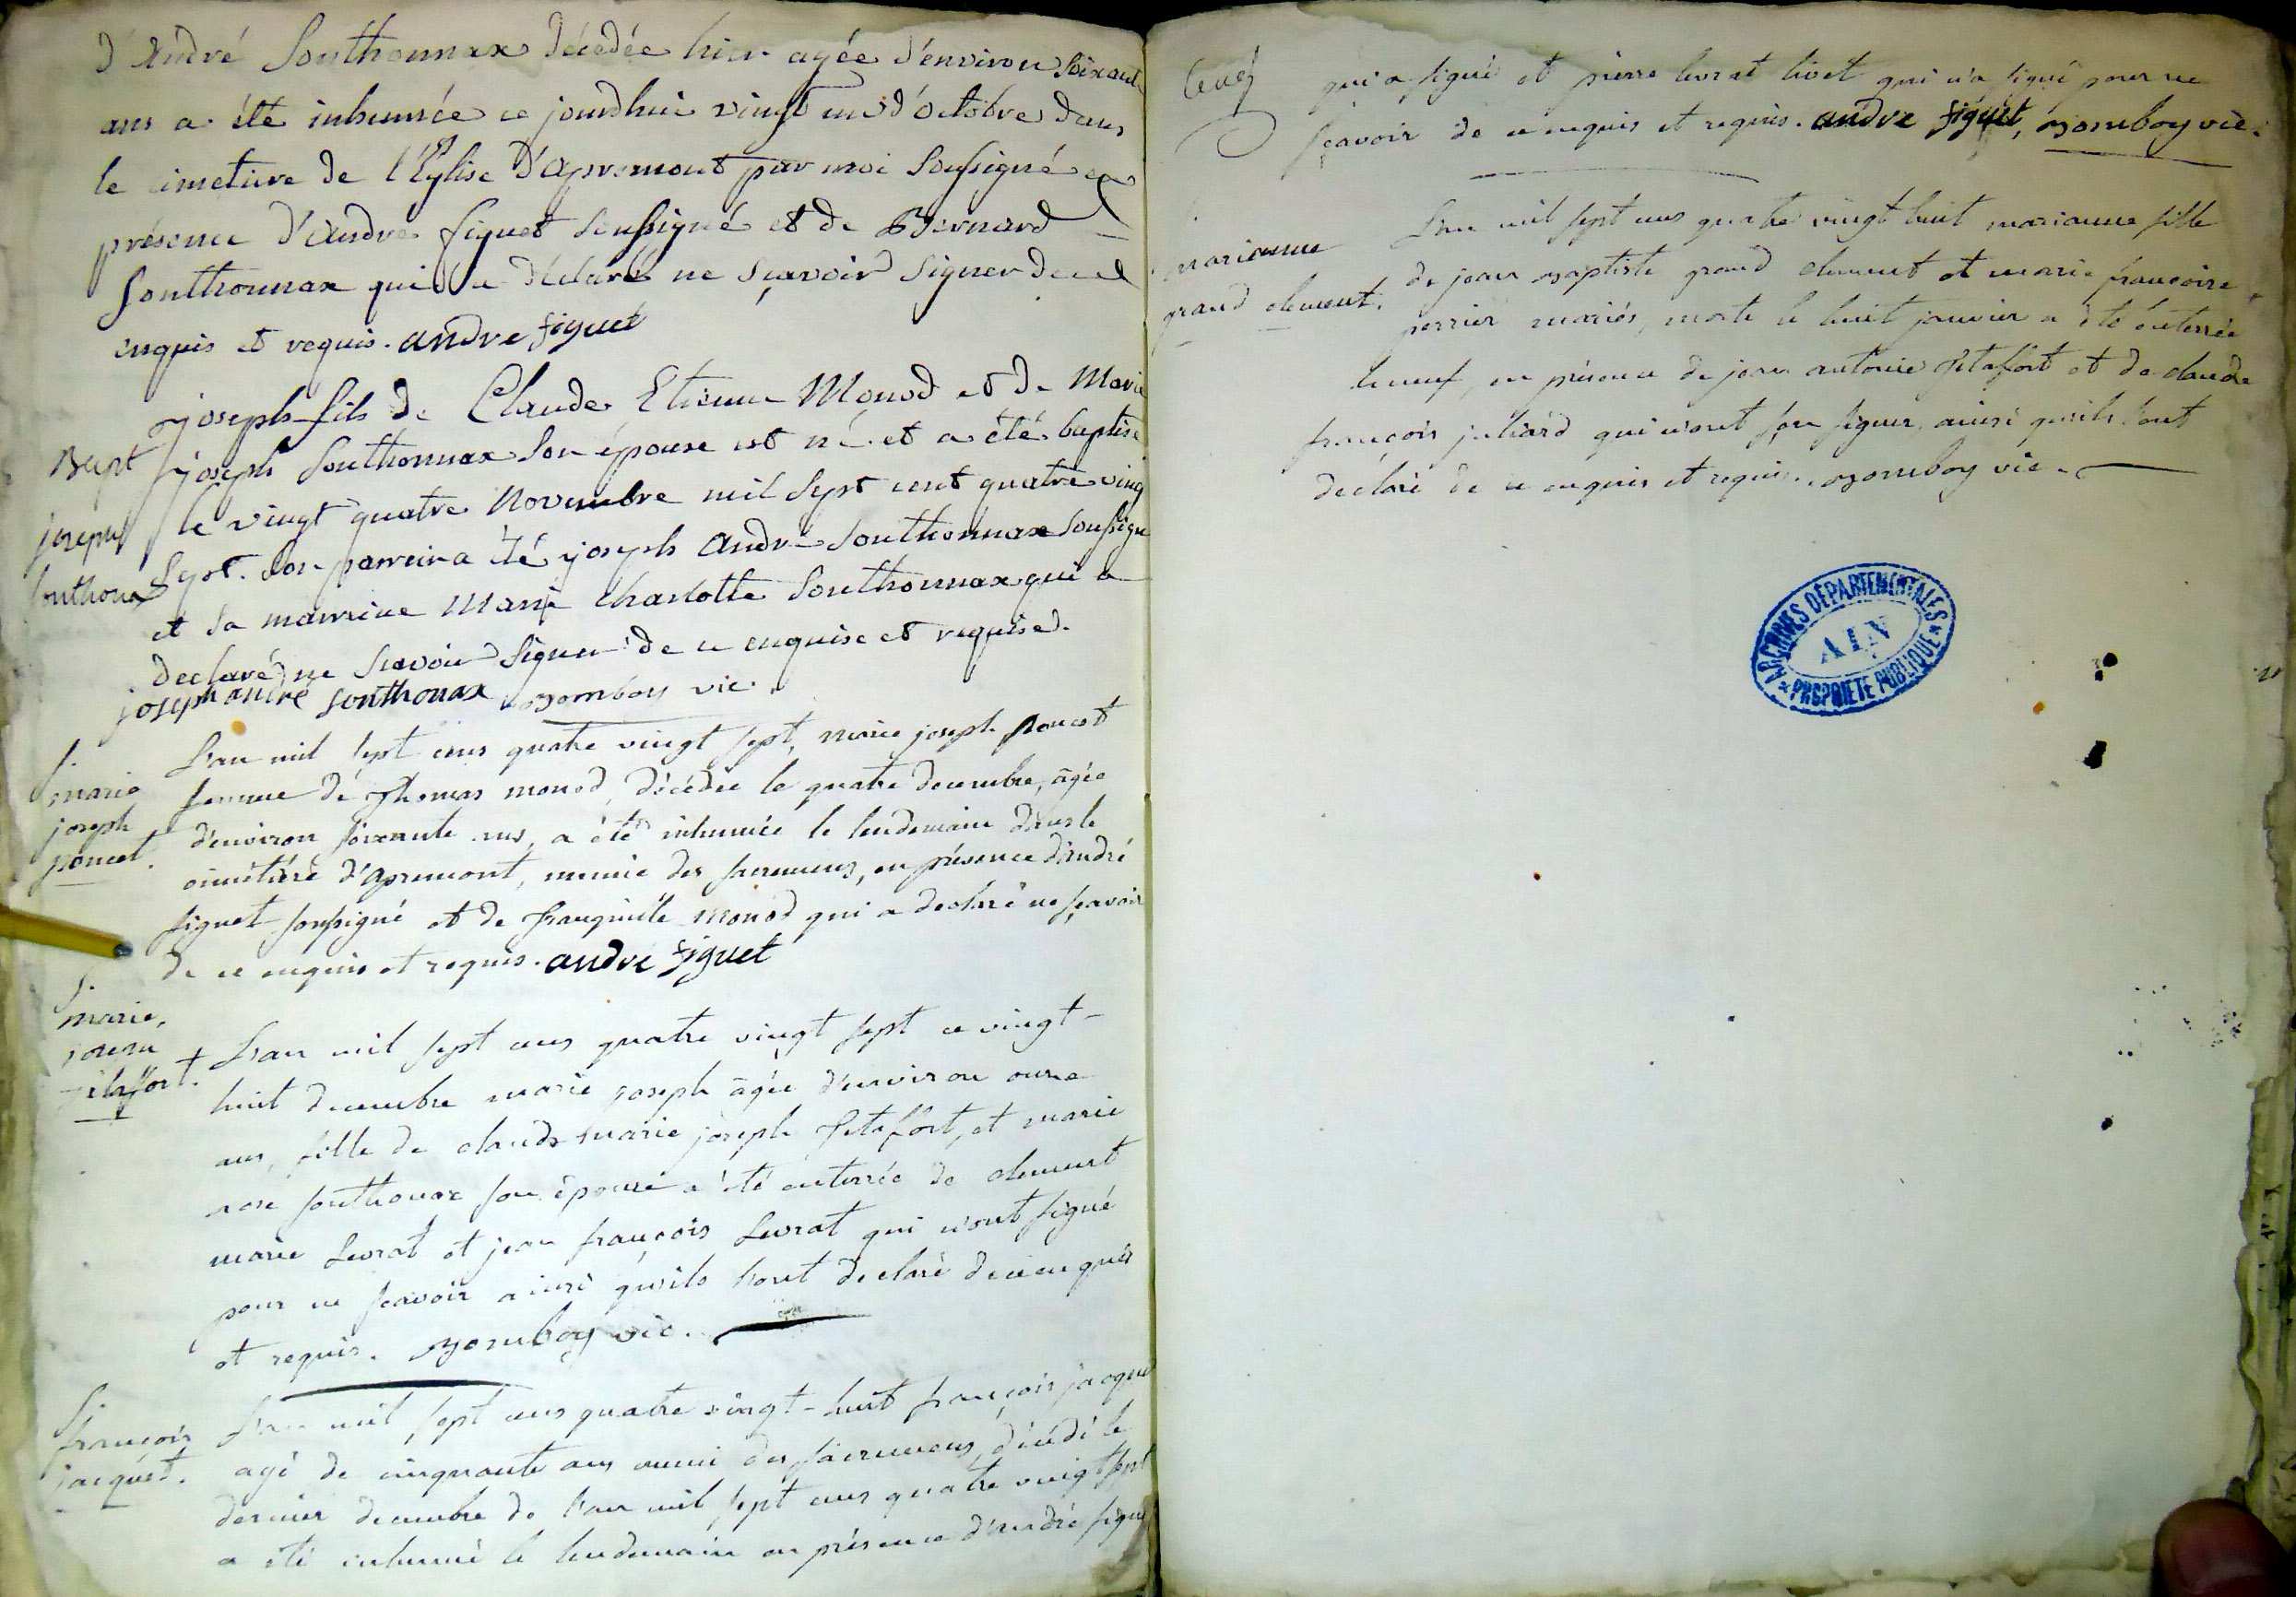 d'André Sonthonnax décédée hier agée d'environ soixante
ans a été inhumée ce jourdhui vingt un d'octobre dans
le cimetiere de l'Eglise d'apremont par moi soussigné en
présence d'André figuet soussigné et de Bernard
Sonthonnax qui a déclaré ne sçavoir signer de ce
enquis et requis. andre figuet
joseph fils de Claude Etienne Monod et de Marie
Bapt
joseph Sonthonnax son épouse est né et a été baptisé
le vingt quatre Novembre mil sept cent quatre ving
joseph
sept. son parrein a été joseph André Sonthonnax soussigné
sonthonax
et sa marreine Marie Charlotte Sonthonnax qui a
declaré ne scavoir signer de ce enquise et requise.
joseph andré sonthonax, Bomboy vic.
L'an mil sept cens quatre vingt sept, marie joseph Poncet
S.
marie
femme de Thomas monod, décédée le quatre decembre, agée
joseph
d'environ soixante ans, a été inhumée le lendemain dans le
poncet.
cimétiére d'apremont, munie des sacremens, en présence d'andré
figuet soussigné et de franquille monod qui a declaré ne sçavoir
de ce enquis et requis. andré figuet
S.
marie,
L'an mil sept cens quatre vingt sept ce vingt-
huit decembre marie joseph agée d'environ onze
ans, fille de claude marie joseph Petafort, et marie
rose sonthonax son épouse a été enterrée de clement
marie Livrat et jean françois Livrat qui n'ont signé
pour ne scavoir ainsi qu'ils l'ont declaré de ce enquis
et requis. Bomboy vic.
S.
L'an mil sept cens quatre vingt-huit françois jacquet
françois
agé de cinquante ans muni des sacremens, décédé le
jacquet.
dernier decembre de l'an mil sept cens quatre vingt sept
a été inhumé le lendemain en présence d'andré figuet
qui a signé et pierre livrat livet qui n'a signé pour ne
sçavoir de ce enquis et requis. andre figuet, Bomboy vic.
L'an mil sept cens quatre vingt huit marianne fille
marianne
de jean Baptiste grand clement et marie françoise
grand clement.
perrier mariés, morte le huit janvier a été enterrée
le neuf, en présence de jean antoine Petafort et de claude
françois juliard qui n'ont sçu signer, ainsi qu'ils l'ont
declaré de ce enquis et requis. Bomboy vic.
ARCHIVES DÉPARTEMENTALES
AIN
PROPRIÉTÉ PUBLIQUE